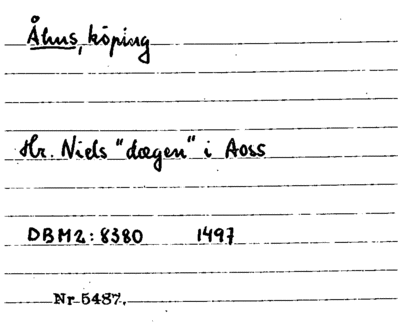 Åhus, köping
Hr. Niels "dægen" i Aoss
DBM2: 8380 1497
Nr 5487.